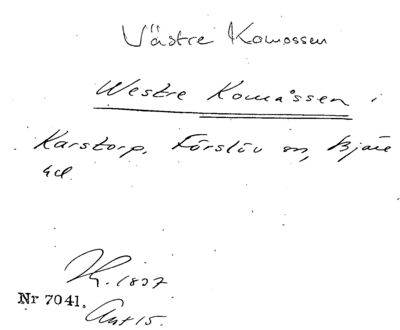 Västre Komossen
Westre Komåssen i
Karstorp, Förslöv sn, Bjäre
hd.
1827
Nr 7041.
Akt 15.